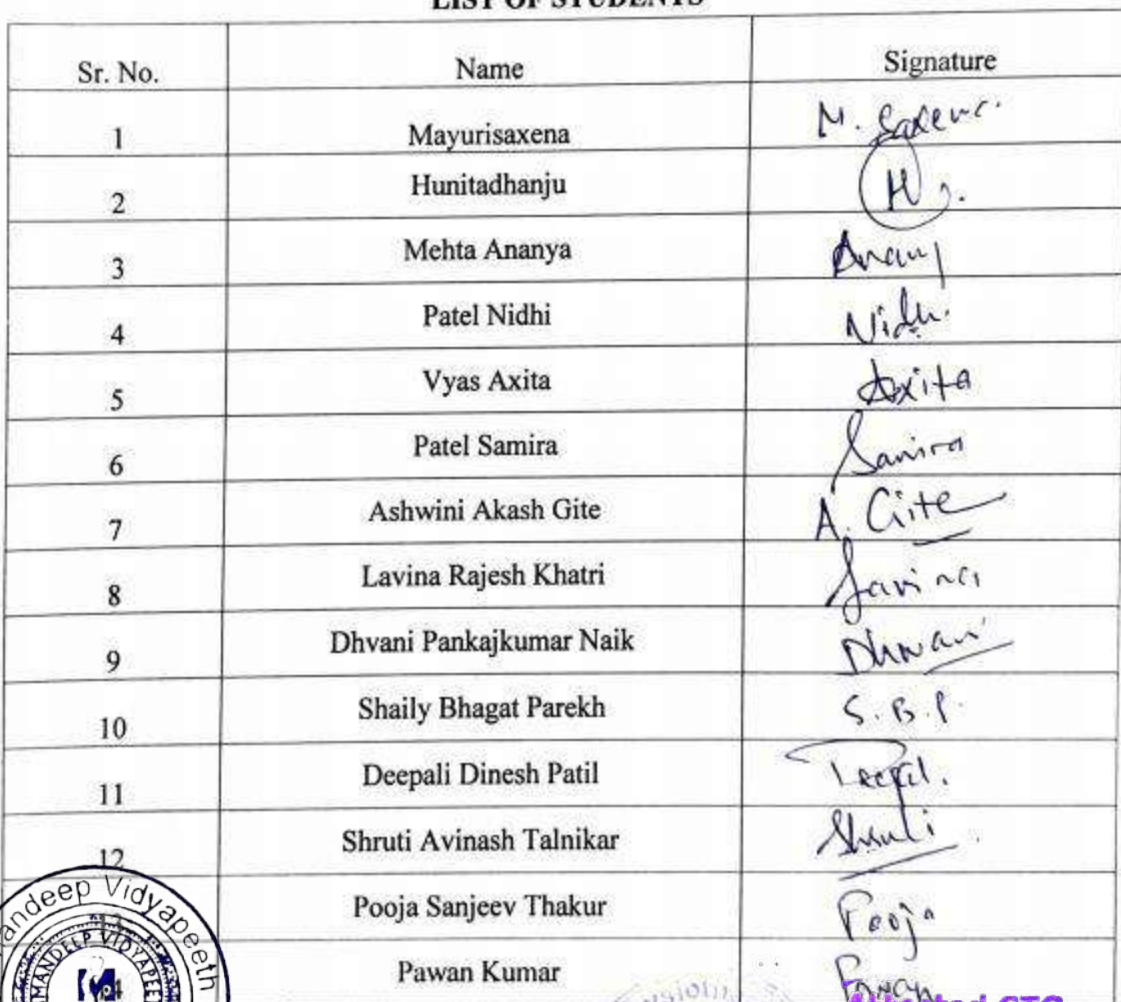 LIST OF STUDENTS
Sr. No. Name Signature
1 Mayurisaxena M. Saxena
2 Hunitadhanju H
3 Mehta Ananya Anany
4 Patel Nidhi Nidhi
5 Vyas Axita Axita
6 Patel Samira Samira
7 Ashwini Akash Gite A. Gite
8 Lavina Rajesh Khatri Lavina
9 Dhvani Pankajkumar Naik Dhwani
10 Shaily Bhagat Parekh S. B. P.
11 Deepali Dinesh Patil Deepal.
12 Shruti Avinash Talnikar Shruti
13 Pooja Sanjeev Thakur Pooja
14 Pawan Kumar Pawan
andeep Vidyapeeth
MANDEEP VIDYAPEE
Attested CTC